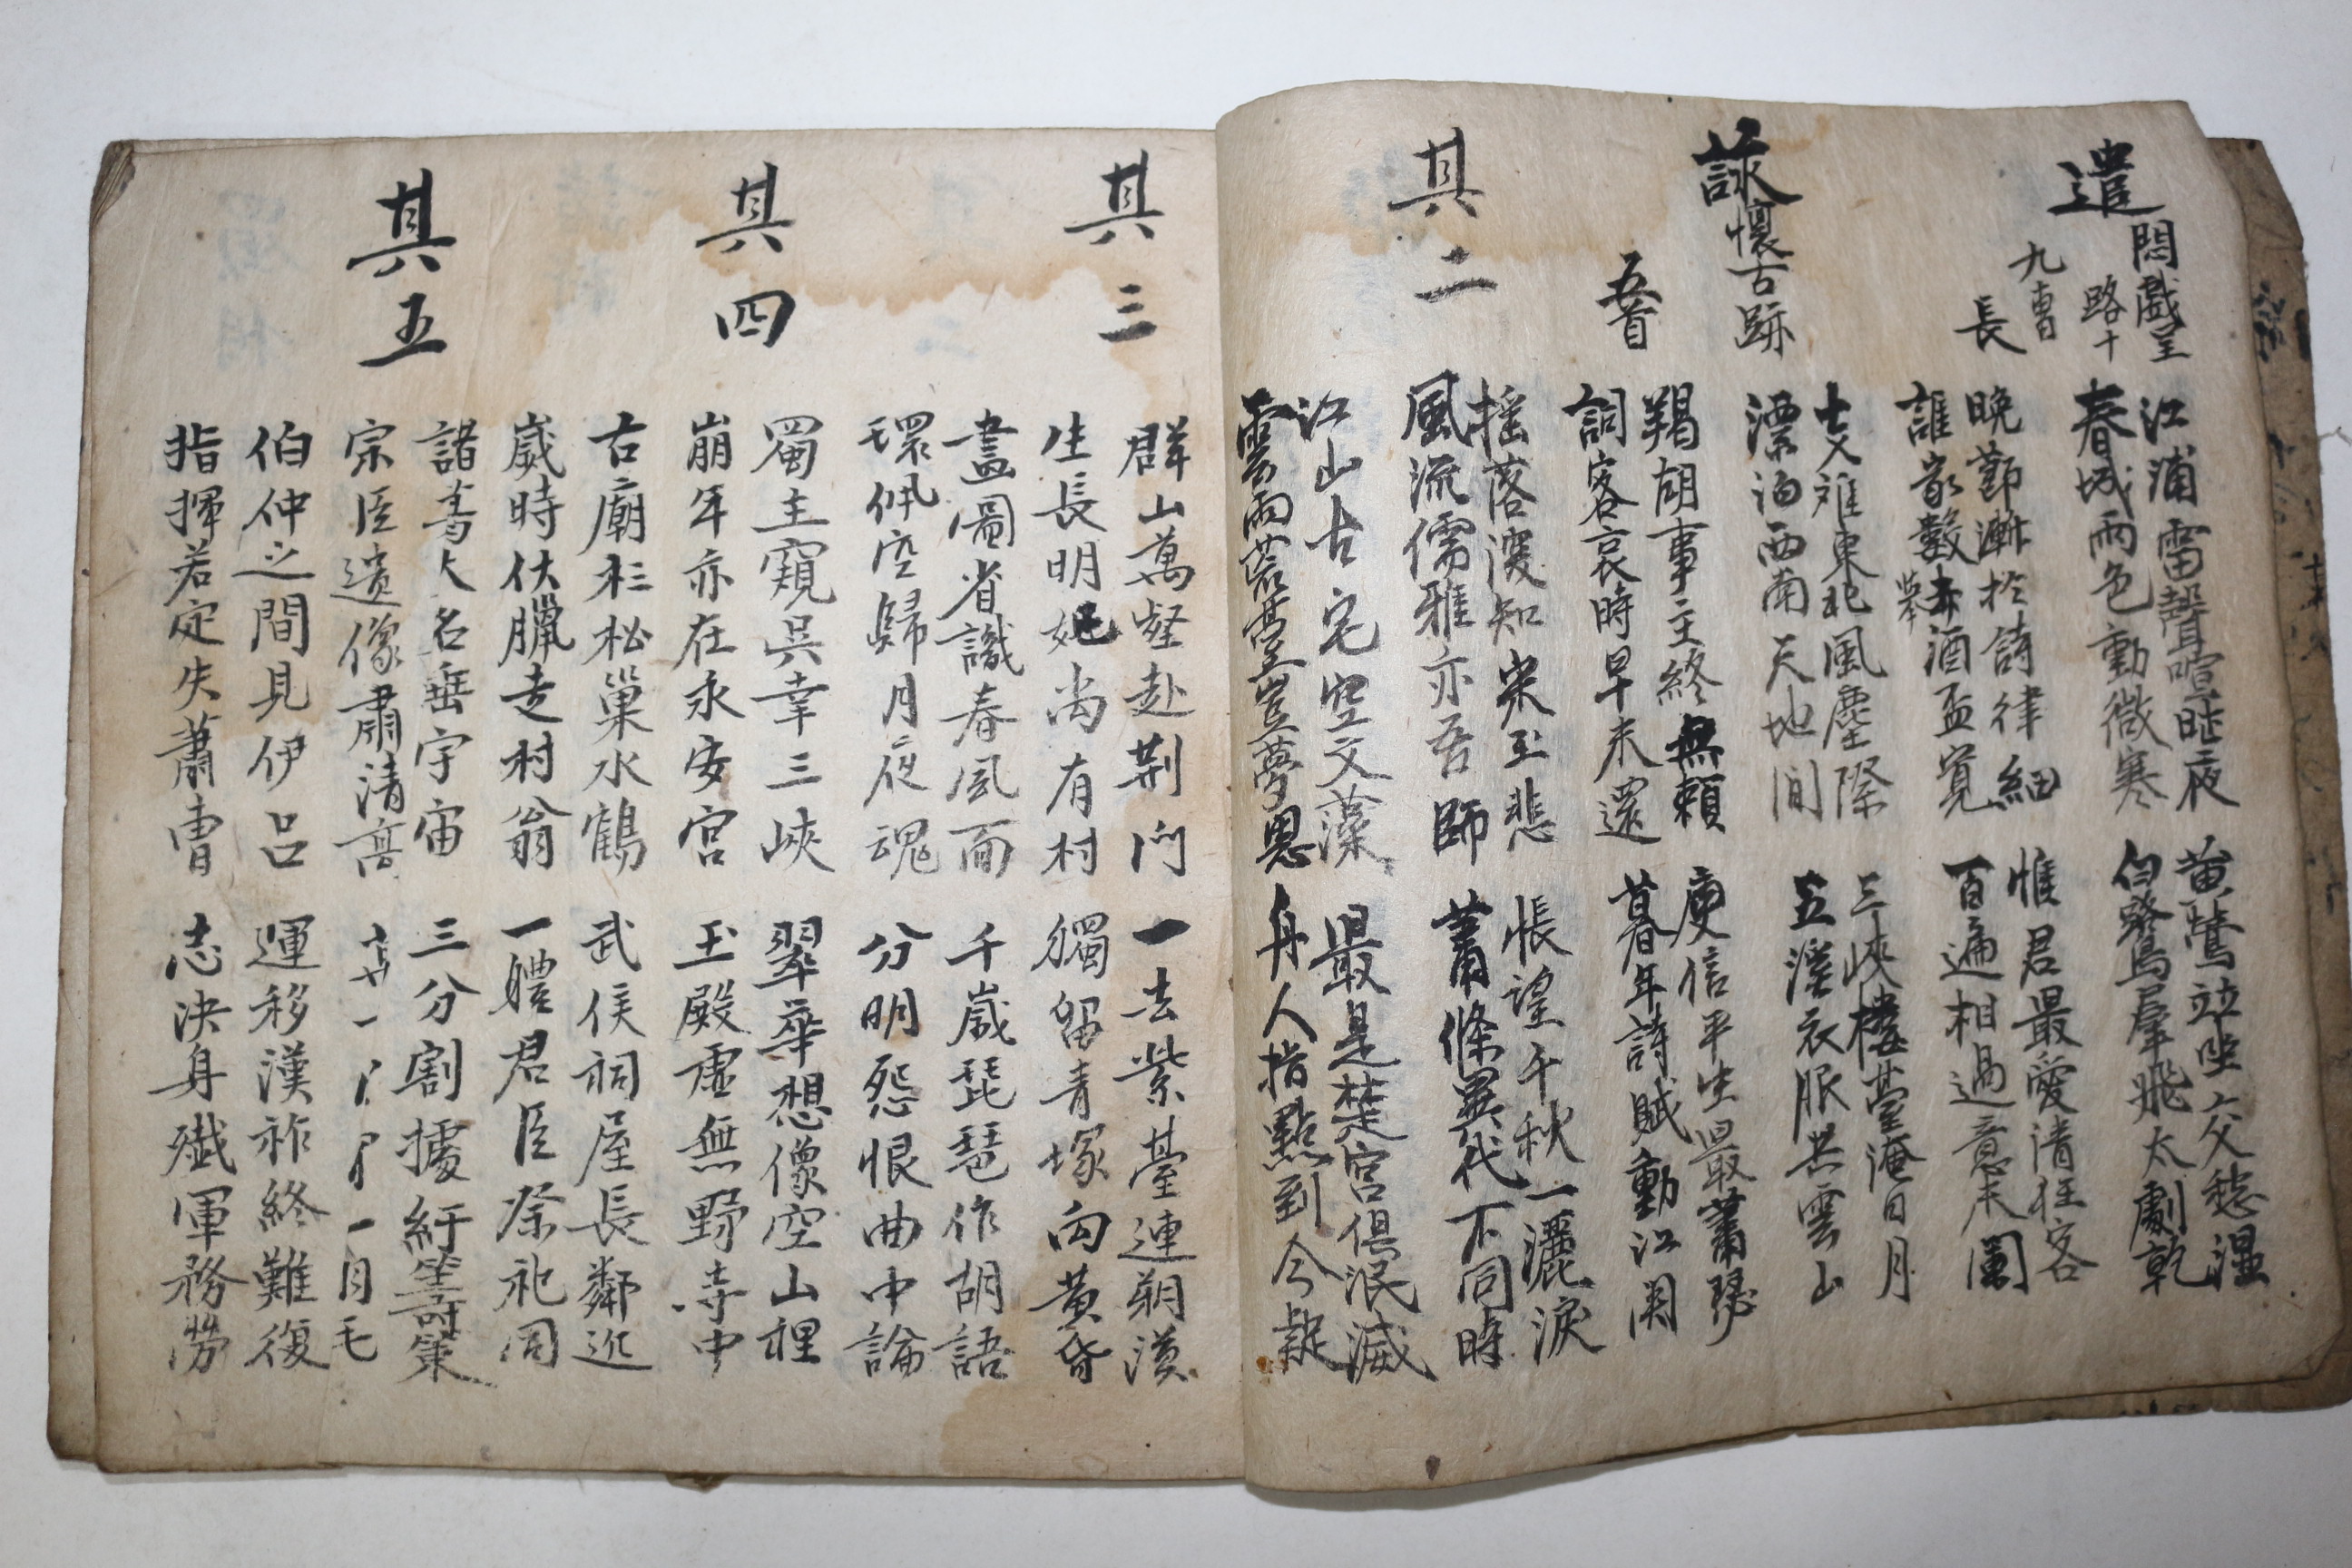 遣悶戲呈
路十
九曹
長
江浦雷聲喧昨夜
春城雨色動微寒
黃鸎竝坐交愁濕
白鷺羣飛太劇乾
晚節漸於詩律細
誰家數去酒盃寬
擧
惟君最愛清狂客
百遍相過意未闌
詠懷古跡
五首
支離東北風塵際
漂泊西南天地間
三峽樓臺淹日月
五溪衣服共雲山
羯胡事主終無賴
詞客哀時早未還
庾信平生最蕭瑟
暮年詩賦動江関
其二
搖落深知宋玉悲
風流儒雅亦吾師
悵望千秋一灑淚
蕭條異代不同時
江山古宅空文藻
雲雨荒臺豈夢思
最是楚宮俱泯滅
舟人指點到今疑
其三
群山萬壑赴荊門
生長明妃尚有村
一去紫臺連朔漠
獨留青塚向黃昏
畫圖省識春風面
環佩空歸月夜魂
千歲琵琶作胡語
分明怨恨曲中論
其四
蜀主窺吳幸三峽
崩年亦在永安宮
翠華想像空山裡
玉殿虛無野寺中
古廟杉松巢水鶴
歲時伏臘走村翁
武侯祠屋長鄰近
一體君臣祭祀同
其五
諸葛大名垂宇宙
宗臣遺像肅清高
三分割據紆籌策
一毛
伯仲之間見伊呂
指揮若定失蕭曹
運移漢祚終難復
志決身殲軍務勞